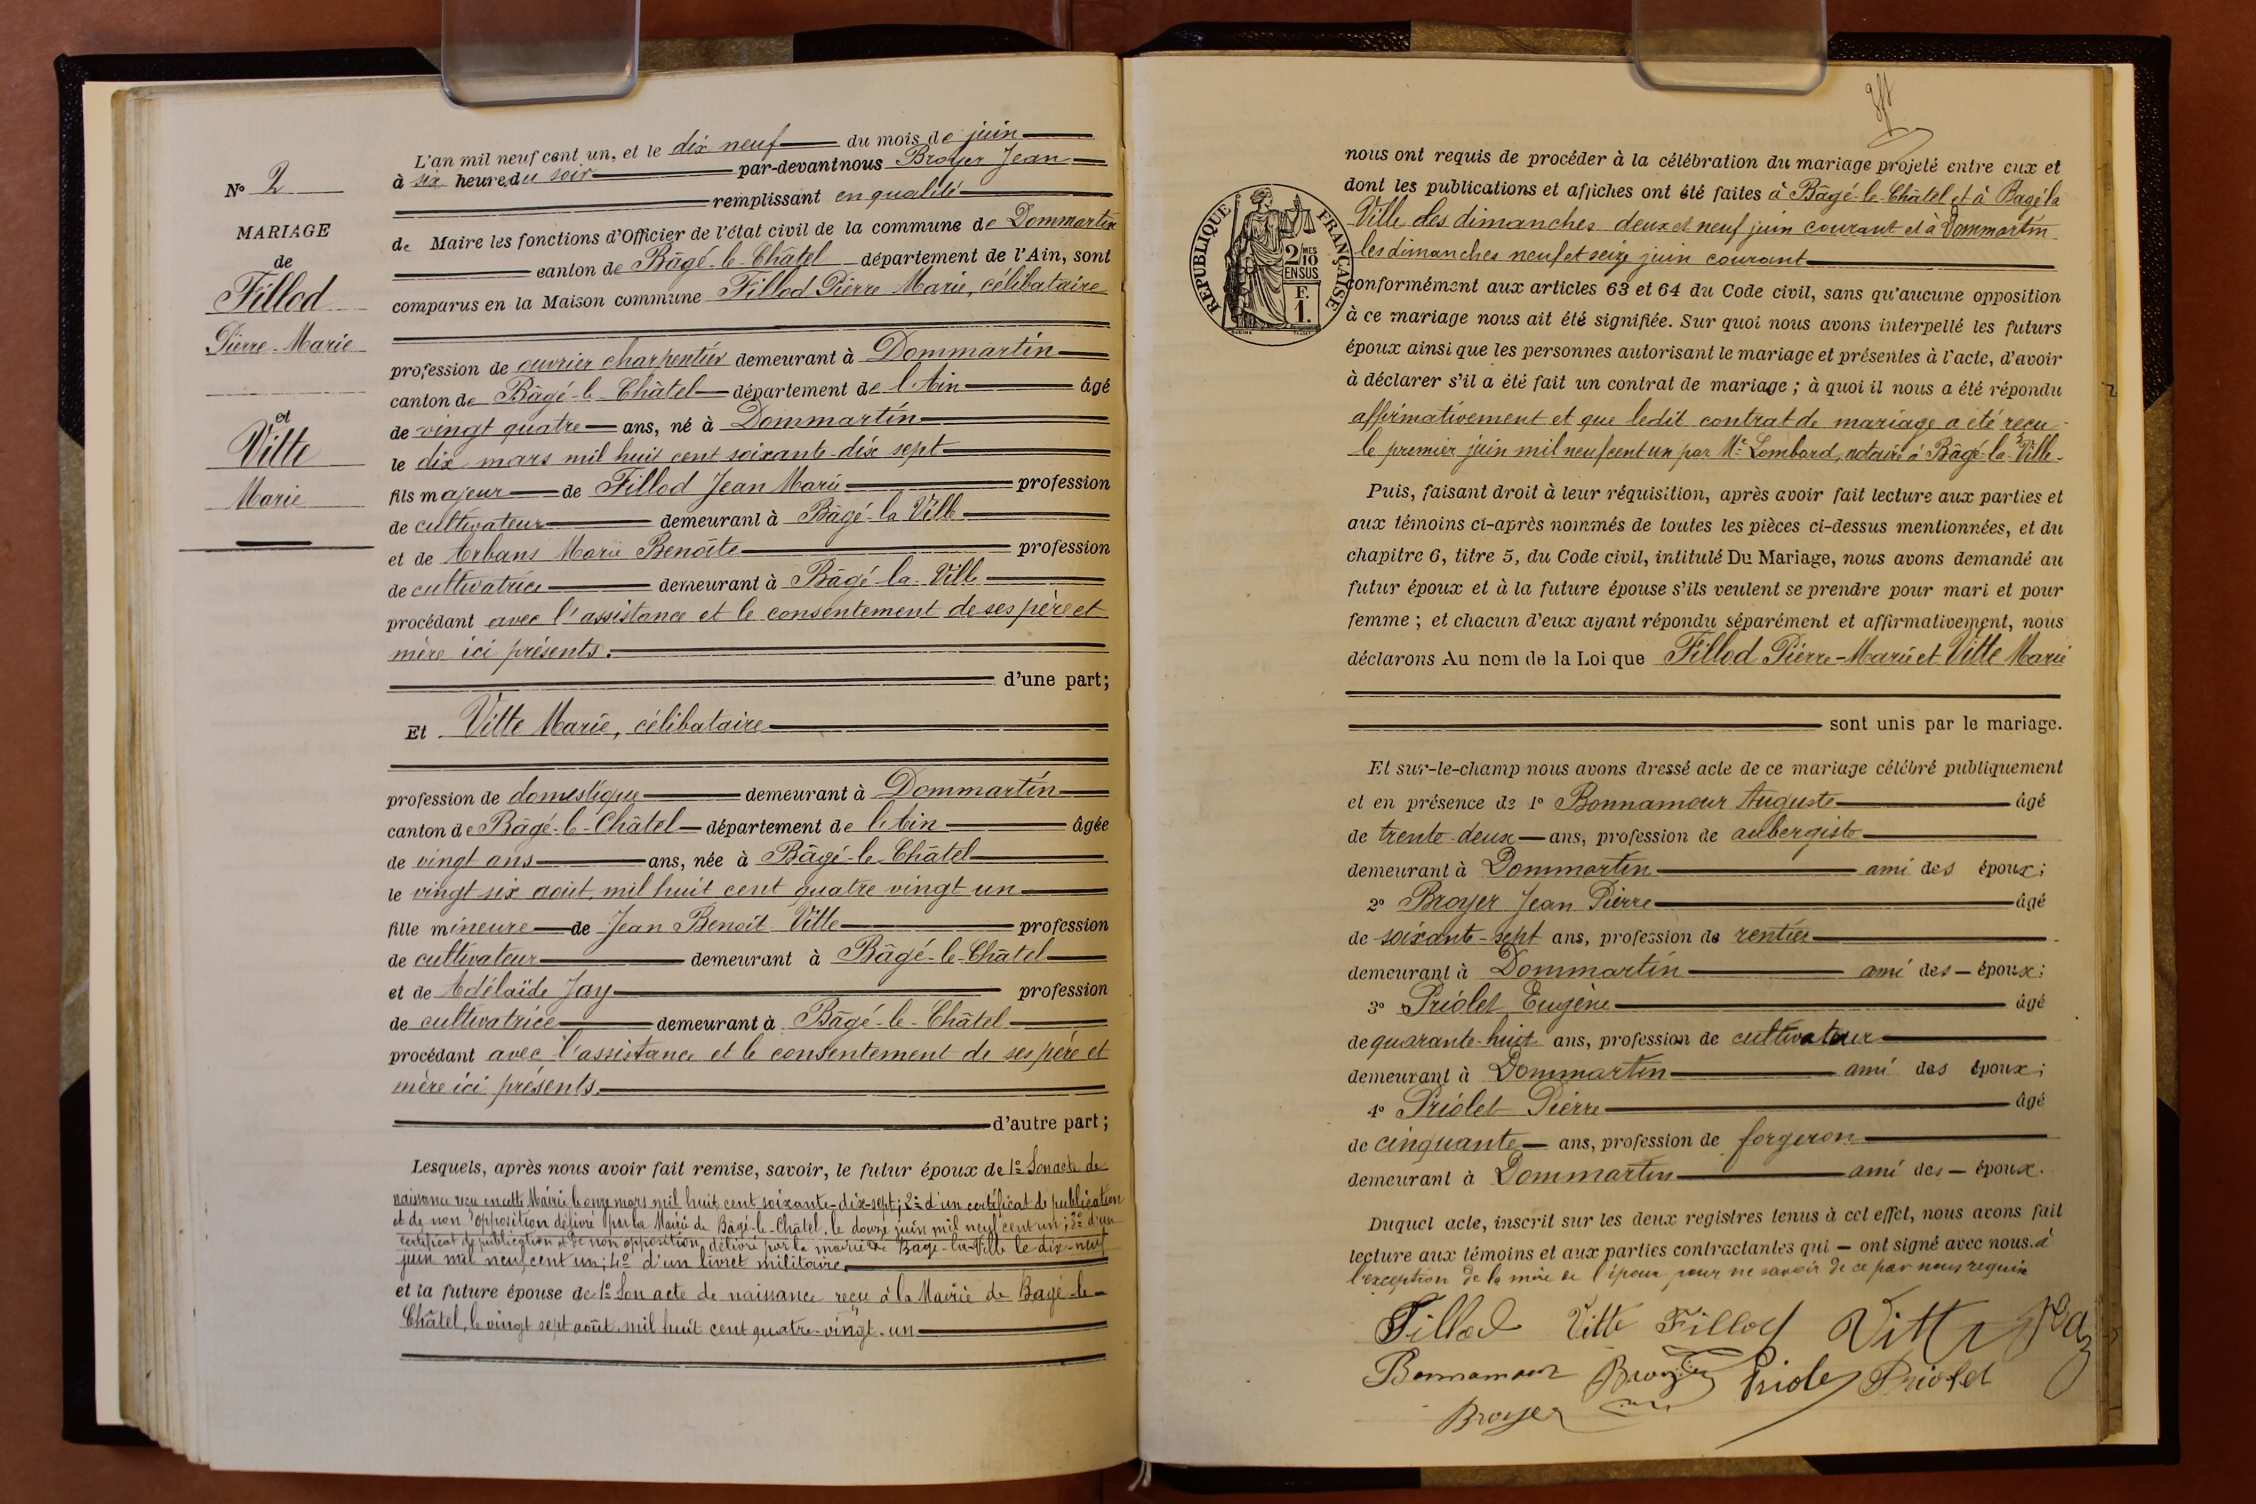 L'an mil neuf cent un, et le dix neuf du mois de juin
à six heures du soir par-devant nous Broyer Jean
remplissant en qualité
de Maire les fonctions d'Officier de l'état civil de la commune de Dommartin
canton de Bâgé-le-Châtel département de l'Ain, sont
comparus en la Maison commune Fillod Pierre Marie, célibataire
profession de ouvrier charpentier demeurant à Dommartin
canton de Bâgé-le-Châtel département de l'Ain âgé
de vingt quatre ans, né à Dommartin
le dix mars mil huit cent soixante-dix sept
fils majeur de Fillod Jean Marie profession
de cultivateur demeurant à Bâgé-la-Ville
et de Arbans Marie Benoîte profession
de cultivatrice demeurant à Bâgé-la-Ville
procédant avec l'assistance et le consentement de ses père et
mère ici présents.
d'une part;
Et Vitte Marie, célibataire
profession de domestique demeurant à Dommartin
canton de Bâgé-le-Châtel département de l'Ain âgée
de vingt ans ans, née à Bâgé-le-Châtel
le vingt six août mil huit cent quatre vingt un
fille mineure de Jean Benoît Vitte profession
de cultivateur demeurant à Bâgé-le-Châtel
et de Adélaïde Jay profession
de cultivatrice demeurant à Bâgé-le-Châtel
procédant avec l'assistance et le consentement de ses père et
mère ici présents.
d'autre part;
Lesquels, après nous avoir fait remise, savoir, le futur époux de 1º Son acte de
naissance reçu en cette Mairie le onze mars mil huit cent soixante-dix-sept; 2º d'un certificat de publication
et de non opposition délivré par la Mairie de Bâgé-le-Châtel, le douze juin mil neuf cent un; 3º d'un
certificat de publication et de non opposition délivré par la mairie de Bâgé-la-Ville le dix-neuf
juin mil neuf cent un; 4º d'un livret militaire.
et la future épouse de 1º Son acte de naissance reçu à la Mairie de Bagé-le-
Châtel, le vingt sept août mil huit cent quatre-vingt-un
Nº 2
MARIAGE
de
Fillod
Pierre-Marie
et
Vitte
Marie
nous ont requis de procéder à la célébration du mariage projeté entre eux et
dont les publications et affiches ont été faites à Bâgé-le-Châtel et à Bagé la
Ville les dimanches deux et neuf juin courant et à Dommartin
les dimanches neuf et seize juin courant
conformément aux articles 63 et 64 du Code civil, sans qu'aucune opposition
à ce mariage nous ait été signifiée. Sur quoi nous avons interpellé les futurs
époux ainsi que les personnes autorisant le mariage et présentes à l'acte, d'avoir
à déclarer s'il a été fait un contrat de mariage; à quoi il nous a été répondu
affirmativement et que ledit contrat de mariage a été reçu
le premier juin mil neuf cent un par Me Lombard, notaire à Bâgé-la-Ville
Puis, faisant droit à leur réquisition, après avoir fait lecture aux parties et
aux témoins ci-après nommés de toutes les pièces ci-dessus mentionnées, et du
chapitre 6, titre 5, du Code civil, intitulé Du Mariage, nous avons demandé au
futur époux et à la future épouse s'ils veulent se prendre pour mari et pour
femme; et chacun d'eux ayant répondu séparément et affirmativement, nous
déclarons Au nom de la Loi que Fillod Pierre-Marie et Vitte Marie
sont unis par le mariage.
Et sur-le-champ nous avons dressé acte de ce mariage célébré publiquement
et en présence de 1º Bonnamour Auguste âgé
de trente-deux ans, profession de aubergiste
demeurant à Dommartin ami des époux;
2º Broyer Jean Pierre âgé
de soixante-sept ans, profession de rentier
demeurant à Dommartin ami des époux;
3º Priolet Eugène âgé
de quarante-huit ans, profession de cultivateur
demeurant à Dommartin ami des époux;
4º Priolet Pierre âgé
de cinquante ans, profession de forgeron
demeurant à Dommartin ami des époux.
Duquel acte, inscrit sur les deux registres tenus à cet effet, nous avons fait
lecture aux témoins et aux parties contractantes qui ont signé avec nous à
l'exception de la mère de l'époux pour ne savoir de ce par nous requise
Fillod Vitte Fillod Vitte
Bonnamour Broyer Priolet Priolet
Broyer
RÉPUBLIQUE FRANÇAISE
2/10 MES
EN SUS
F.
1.